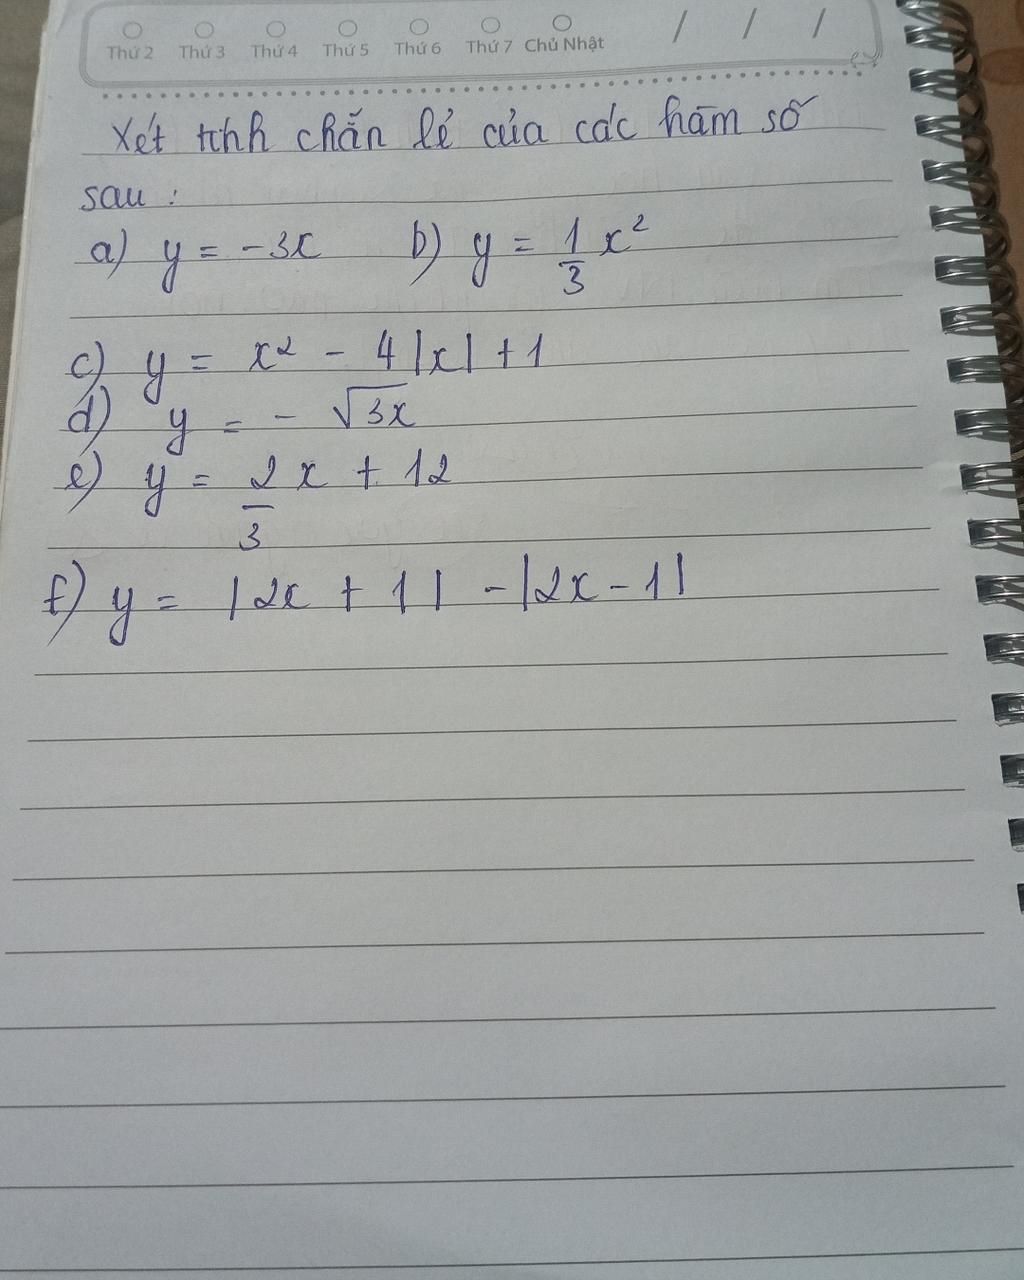 Thứ 2 Thứ 3 Thứ 4 Thứ 5 Thứ 6 Thứ 7 Chủ Nhật / / /
Xét tính chẵn lẻ của các hàm số
sau :
a) y = -3x b) y = 1/3 x²
c) y = x² - 4|x| + 1
d) y = - √3x
e) y = 2/3 x + 12
f) y = |2x + 1| - |2x - 1|